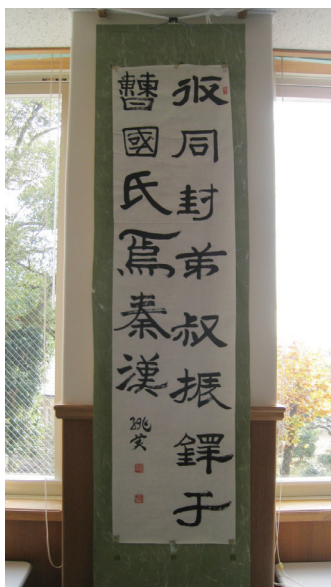 攸同封弟叔振鐸于
曹國氏焉秦漢
姚